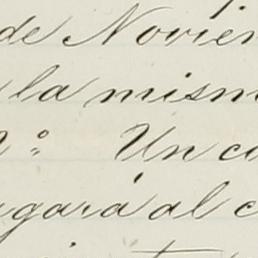 de Novie
la mism
Un c
gará al c